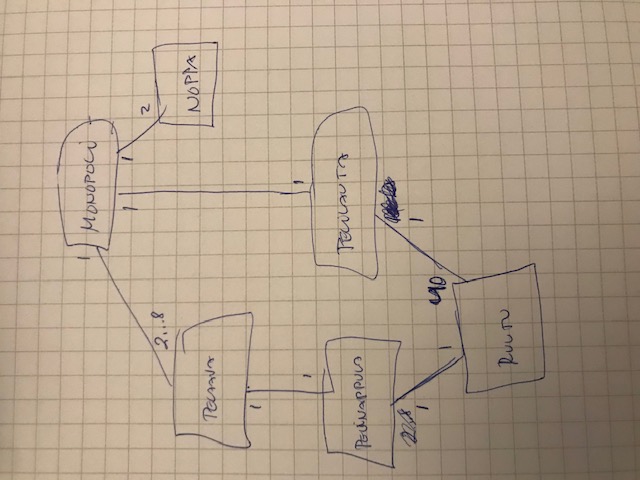 MONOPOLI
1
1
1
2
2...8
NOPPA
PELAAJA
1
1
1
PELILAUTA
PELINAPPULA
1
1
1
40
RUUTU